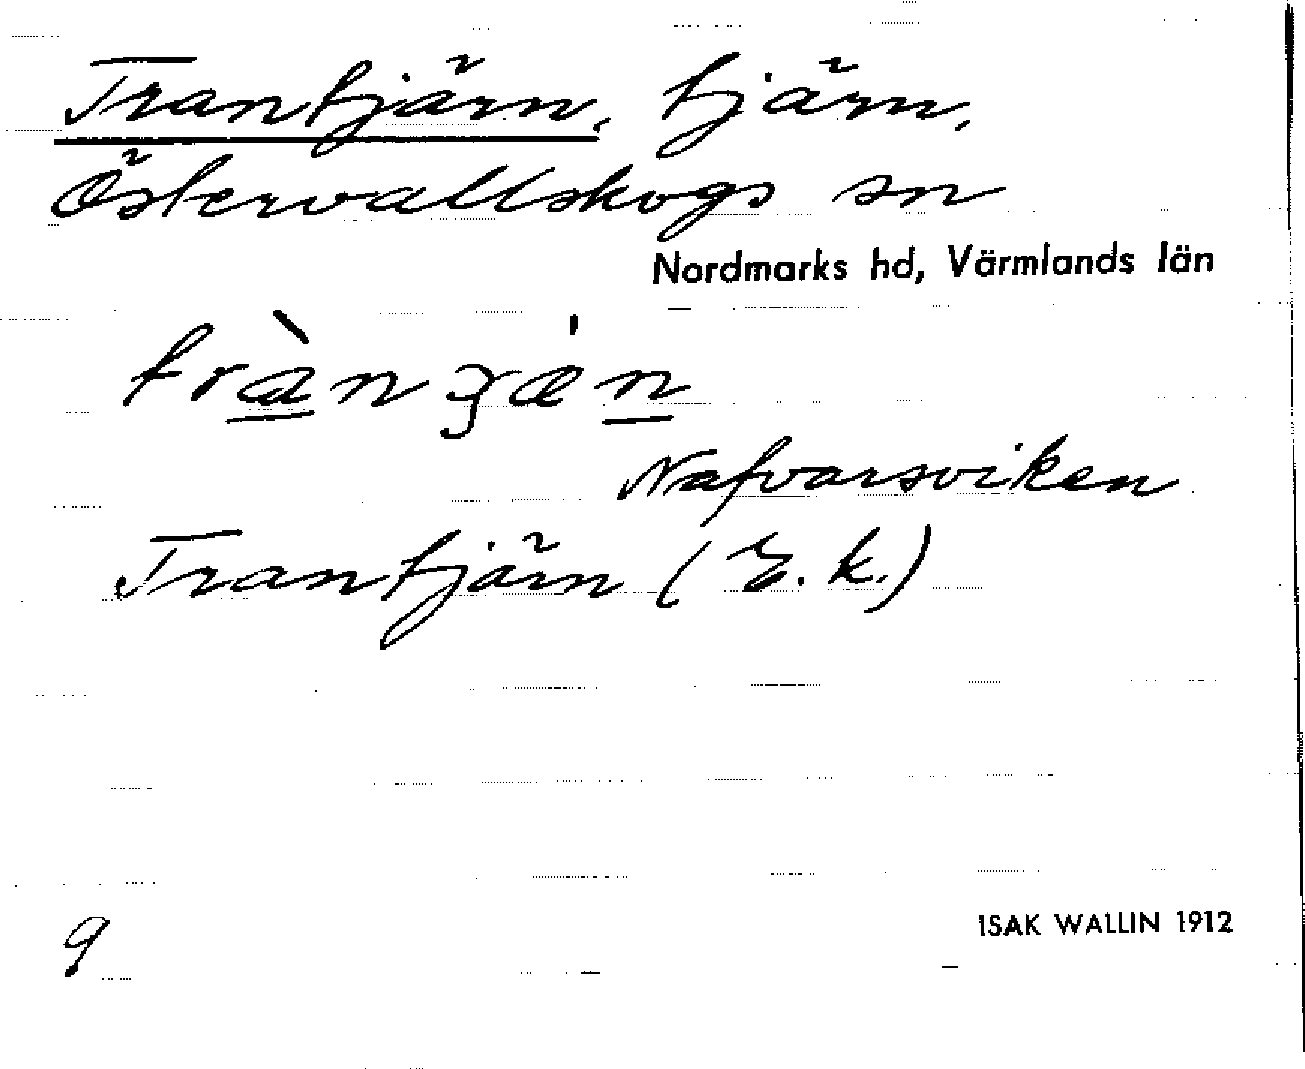 Trantjärn, tjärn,
Östervallskogs sn
Nordmarks hd, Värmlands län
Nafvarsviken
Trantjärn (E. k.)
9
ISAK WALLIN 1912